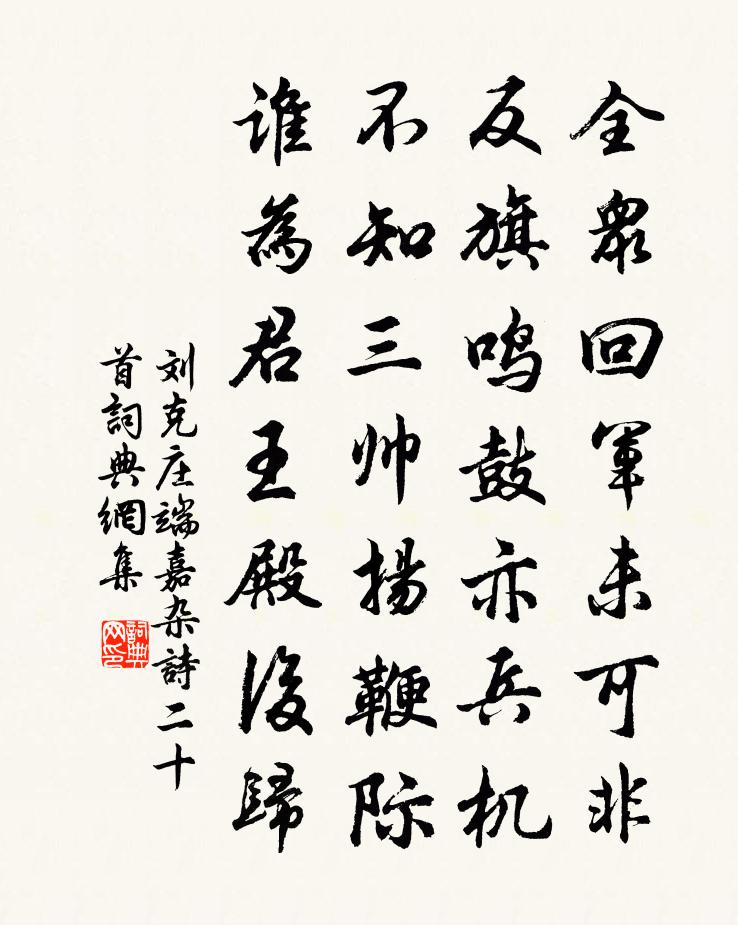 全眾回軍未可非
反旗鸣鼓亦兵机
不知三帅揚鞭际
谁為君王殿後歸
刘克庄端嘉杂詩二十
首詞典網集
詞典网印